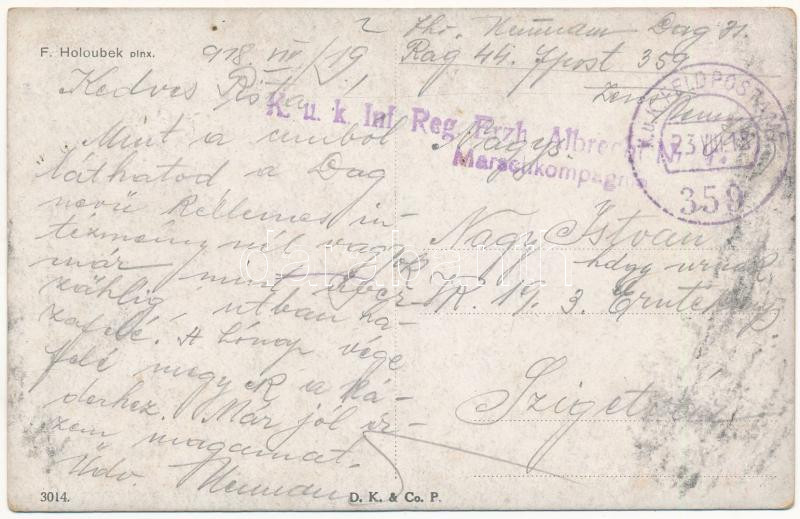 F. Holoubek pinx.
918. VIII/19.
Kedves Pista!
Mint a cimből
láthatod a Dag
nevü kellemes in-
tézménynél vagyok
már mint über-
zählig utban ha-
zafelé. A hónap vége
felé megyek a ká-
derhez. Már jól ér-
zem magamat.
Üdv. Neumann
3014.
D. K. & Co. P.
Neumann Dag 31.
Rag 44. Fpost 359
Zens.
K. u. k. Inf. Reg. Erzh. Albrecht Nr.
Marschkompagnie
K.u.K. FELDPOSTAMT
23 VIII 18
359
Nagys.
Nagy István
hdgy urnak
IR. 19. 3. Érntékp.
Szigetvár
darabanth